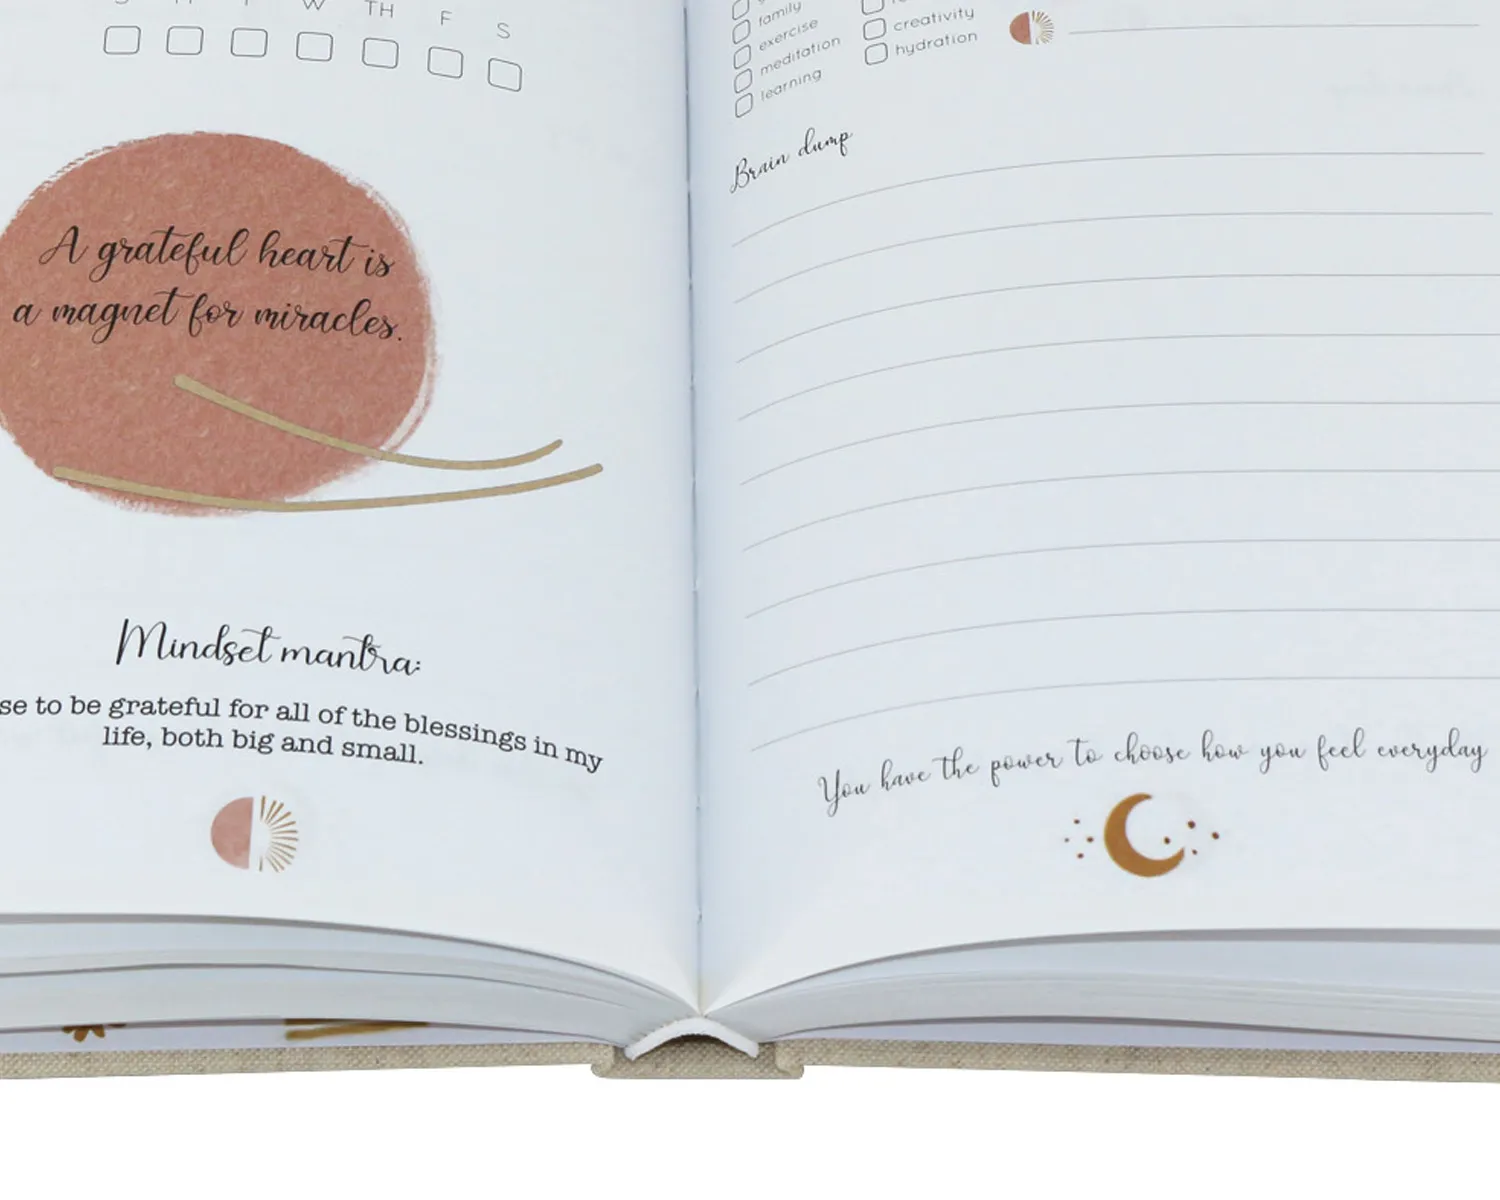 W TH F S
A grateful heart is
a magnet for miracles.
Mindset mantra:
se to be grateful for all of the blessings in my
life, both big and small.
family
exercise
meditation
learning
creativity
hydration
Brain dump
You have the power to choose how you feel everyday